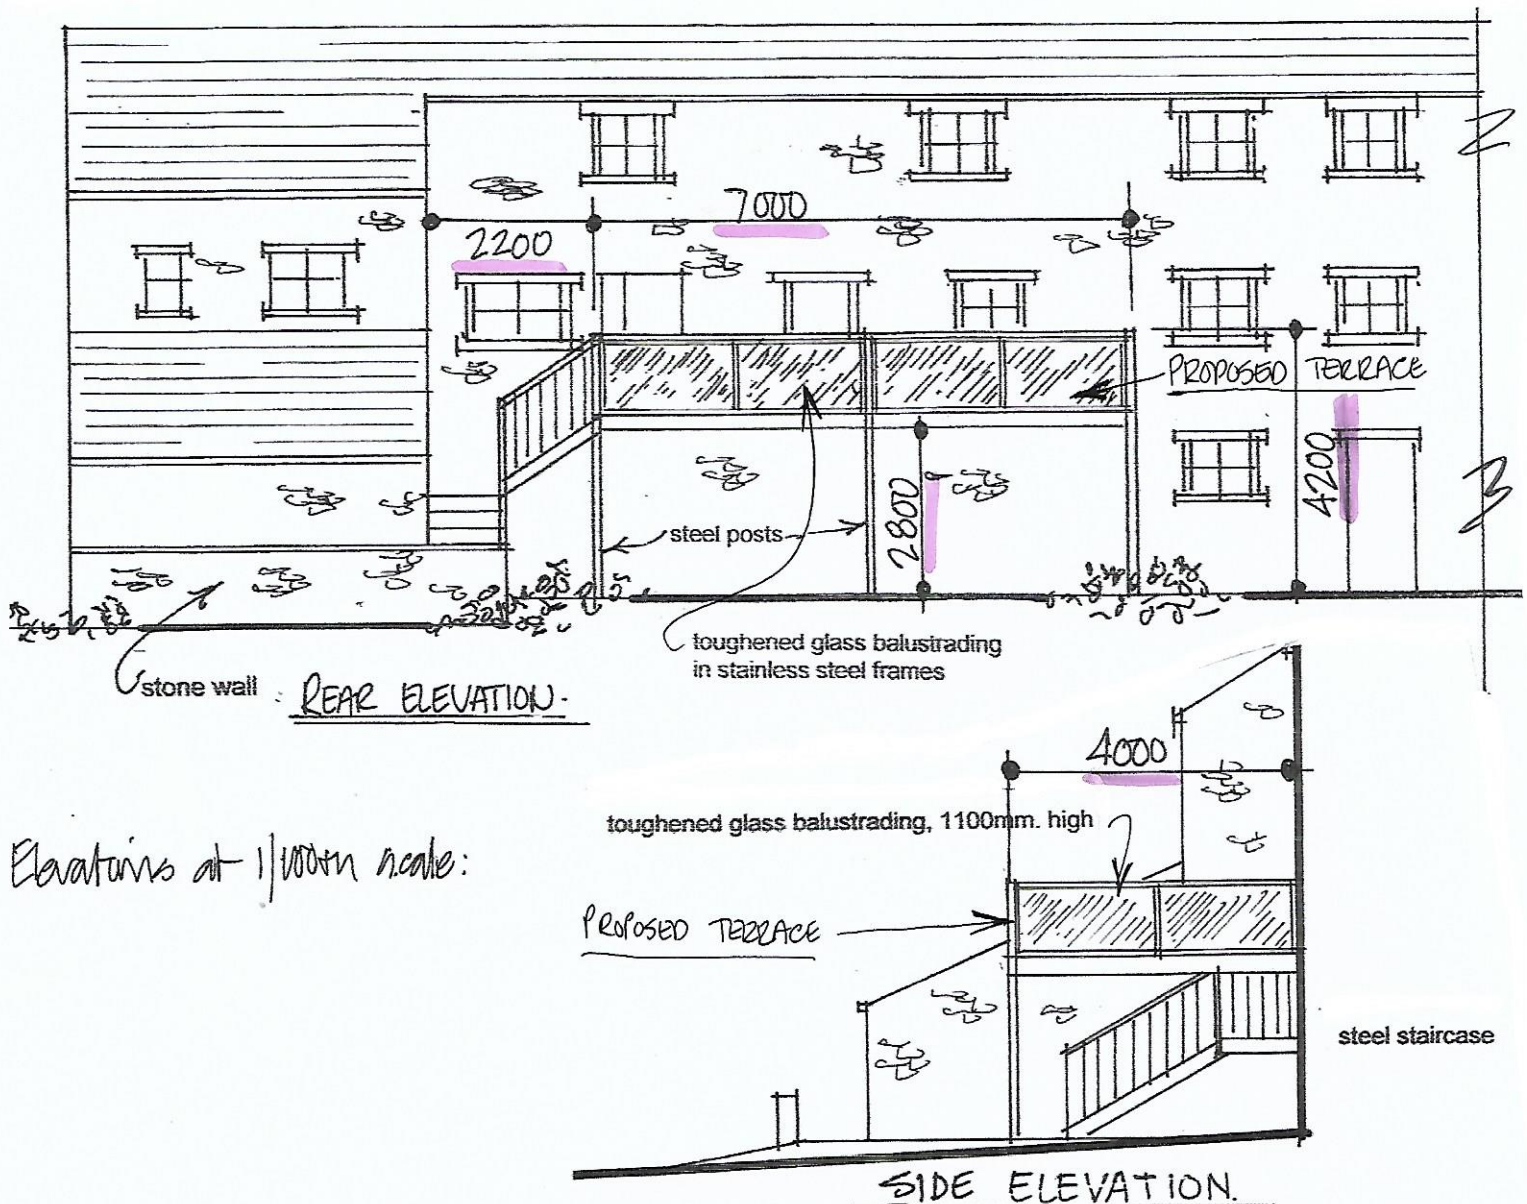 2
7000
2200
PROPOSED TERRACE
4200
3
2800
steel posts
toughened glass balustrading
in stainless steel frames
stone wall
REAR ELEVATION.
4000
toughened glass balustrading, 1100mm. high
Elevations at 1/100th scale:
PROPOSED TERRACE
steel staircase
SIDE ELEVATION.